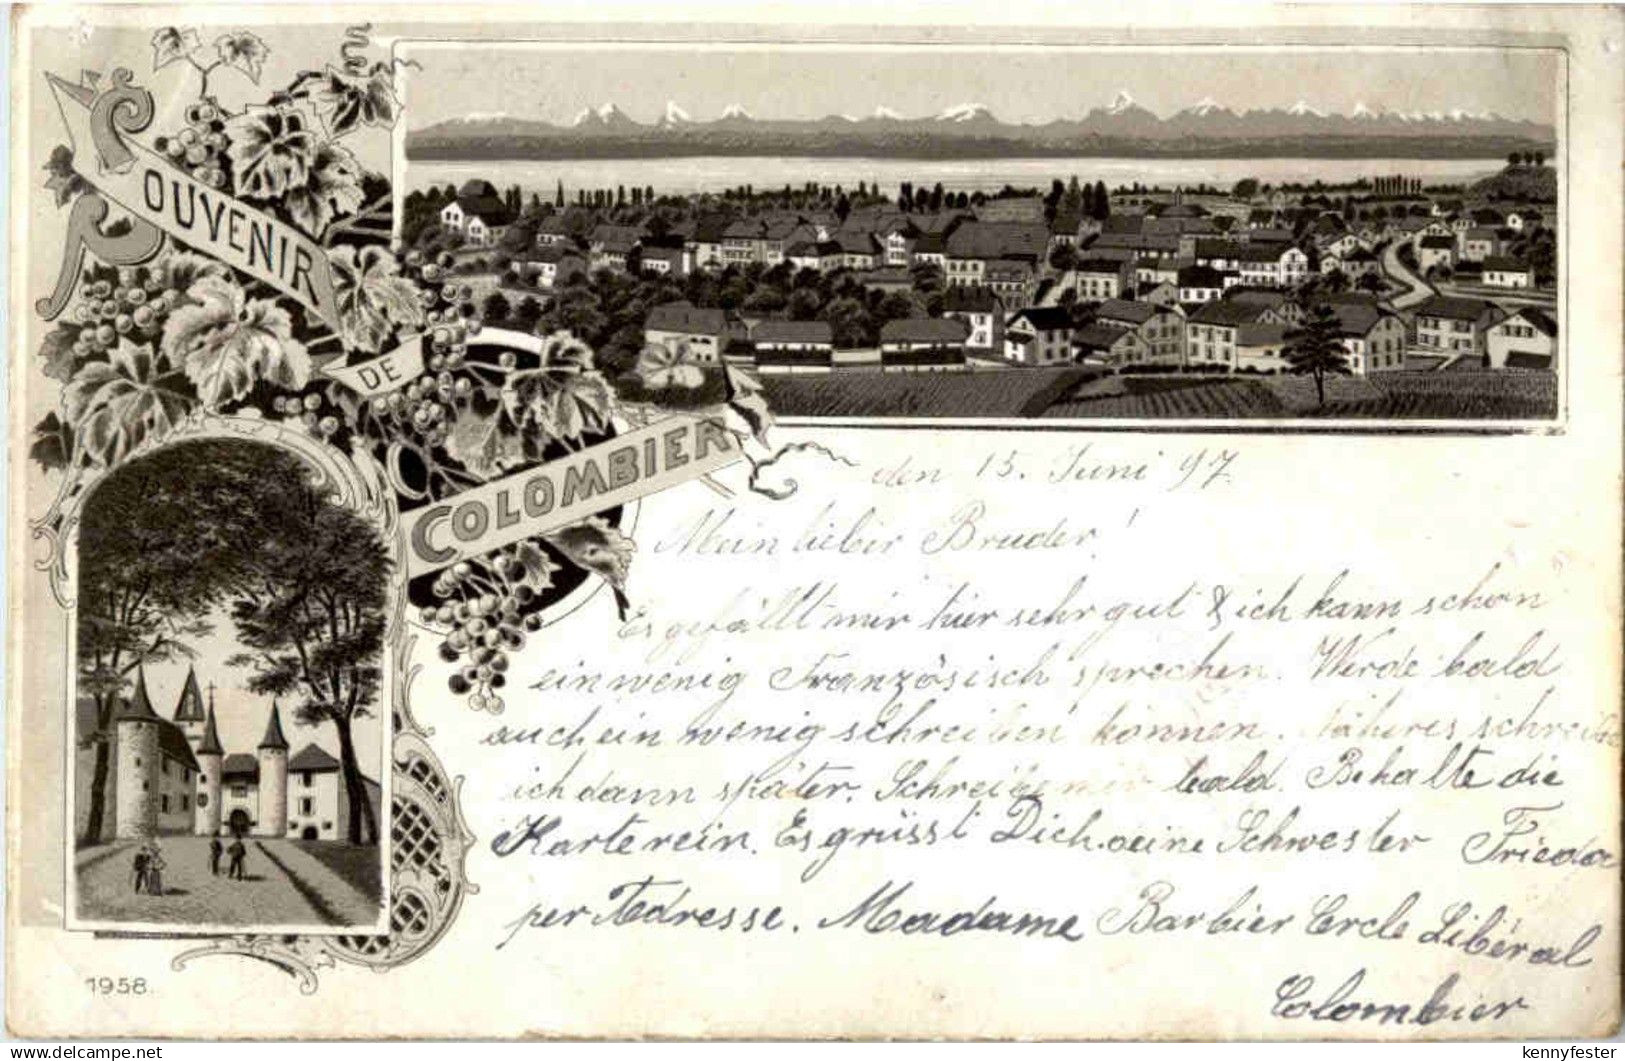 SOUVENIR
DE
COLOMBIER
den 15. Juni 97.
Mein lieber Bruder!
Es gefällt mir hier sehr gut & ich kann schon
ein wenig Französisch sprechen. Werde bald
auch ein wenig schreiben können. Näheres schreibe
ich dann später. Schreibe mir bald. Behalte die
Karte rein. Es grüsst Dich deine Schwester Frieda
per Adresse. Madame Barbier Cercle Libéral
Colombier
1958.
kennyfester